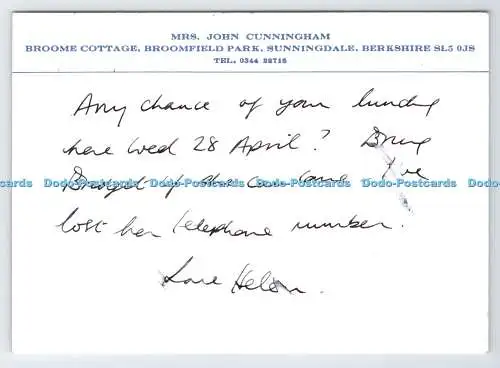 MRS. JOHN CUNNINGHAM
BROOME COTTAGE, BROOMFIELD PARK, SUNNINGDALE, BERKSHIRE SL5 0JS
TEL. 0344 22716
Any chance of your lunching
here Wed 28 April? Bring
if she can come I've
Dodo-Postcards Dodo-Postcards Dodo-Postcards Dodo-Postcards Dodo-Postcards
lost her telephone number.
Love Helen.